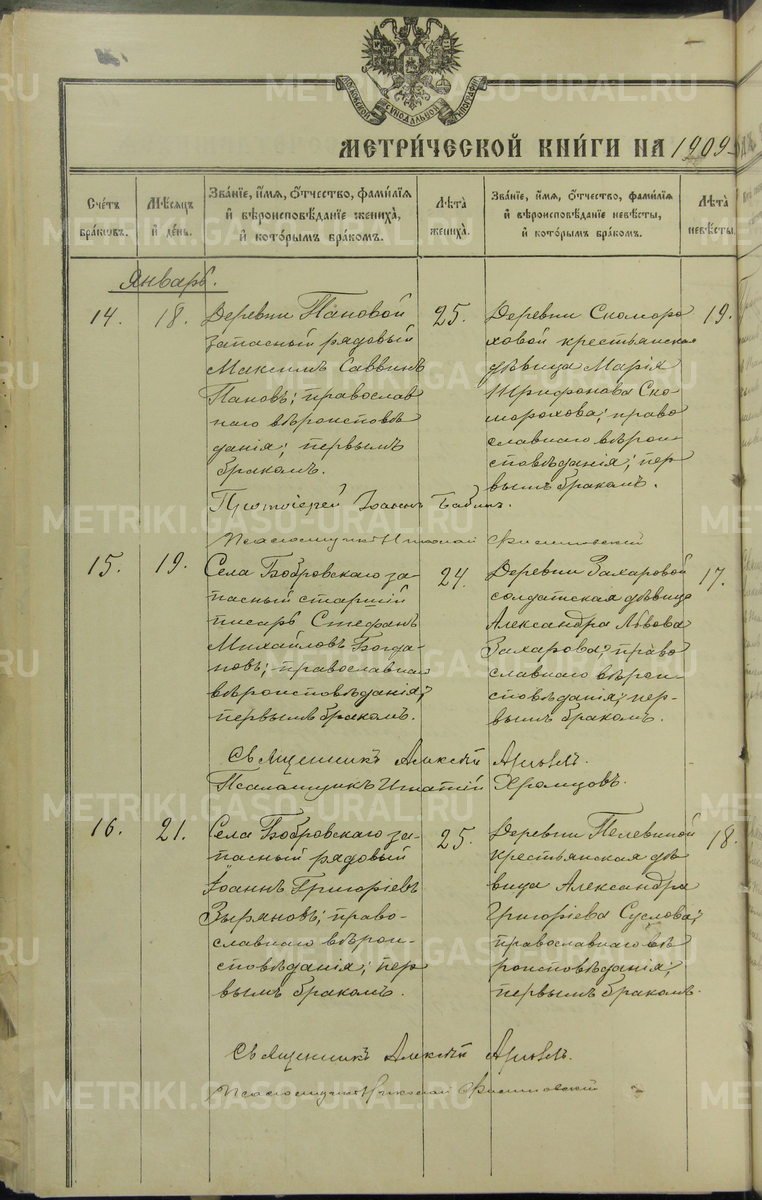 МОСКОВСКОЙ СѴНОДАЛЬНОЙ ТИПОГРАФІИ
МЕТРИ́ЧЕСКОЙ КНИ́ГИ НА 1909
Сче́тъ бра́ковъ.
Мѣ́сяцъ и҆ де́нь.
Зва́нїе, и҆́мѧ, Ѻ҆́тчество, фами́лїѧ и҆ вѣроисповѣ́данїе жениха̀, и҆ кото́рымъ бра́комъ.
Лѣта̀ жениха̀.
Зва́нїе, и҆́мѧ, Ѻ҆́тчество, фами́лїѧ и҆ вѣроисповѣ́данїе невѣ́сты, и҆ кото́рымъ бра́комъ.
Лѣта̀ невѣ́сты.
Январь.
14.
18.
Деревни Пановой
запасный рядовый
Максимъ Саввинъ
Пановъ; православ
наго вѣроисповѣ
данія; первымъ
бракомъ.
25.
Деревни Скоморо
ховой крестьянская
дѣвица Марія
Трифонова Ско
морохова; право
славнаго вѣрои
сповѣданія; пер
вымъ бракомъ.
19.
Протоіерей Іоаннъ Бабинъ.
Псаломщикъ Николай
15.
19.
Села Бобровскаго за
пасный старшій
писарь Стефанъ
Михайловъ Богда
новъ; православнаго
вѣроисповѣданія;
первымъ бракомъ.
24.
Деревни Захаровой
солдатская дѣвица
Александра Львова
Захарова; право
славнаго вѣрои
сповѣданія; пер-
вымъ бракомъ.
17.
Священникъ Алексѣй
Псаломщикъ Игнатій Хромцовъ.
16.
21.
Села Бобровскаго за-
пасный рядовый
Іоаннъ Григоріевъ
Зыряновъ; право-
славнаго вѣрои-
сповѣданія; пер
вымъ бракомъ.
25.
Деревни Пелевиной
крестьянская дѣ
вица Александра
Григоріева Суслова;
православнаго вѣ
роисповѣданія;
первымъ бракомъ.
18.
Священникъ Алексѣй
Псаломщикъ Николай
METRIKI.GASO-URAL.RU